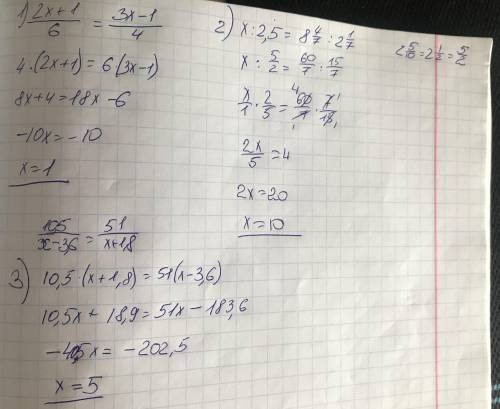 1) (2x+1)/6 = (3x-1)/4
4·(2x+1)=6(3x-1)
8x+4=18x-6
-10x=-10
x=1
2) x:2,5=8 4/7:2 1/7
x:5/2=60/7:15/7
x/1·2/5=60/7·7/15
2x/5=4
2x=20
x=10
2 5/10=2 1/2=5/2
3) 105/(x-3,6)=51/(x+1,8)
10,5·(x+1,8)=51(x-3,6)
10,5x+18,9=51x-183,6
-40,5x=-202,5
x=5